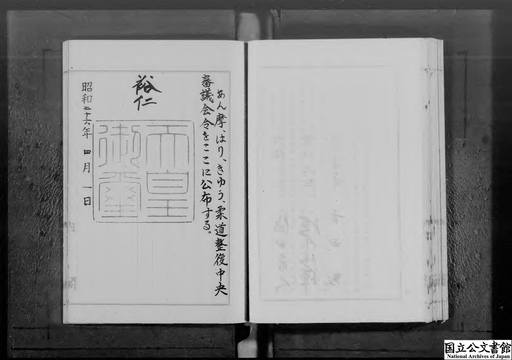 あん摩、はり、きゆう、柔道整復中央
審議会令をここに公布する。
裕仁
天皇
御璽
昭和三十六年 四月 一日
国立公文書館
National Archives of Japan